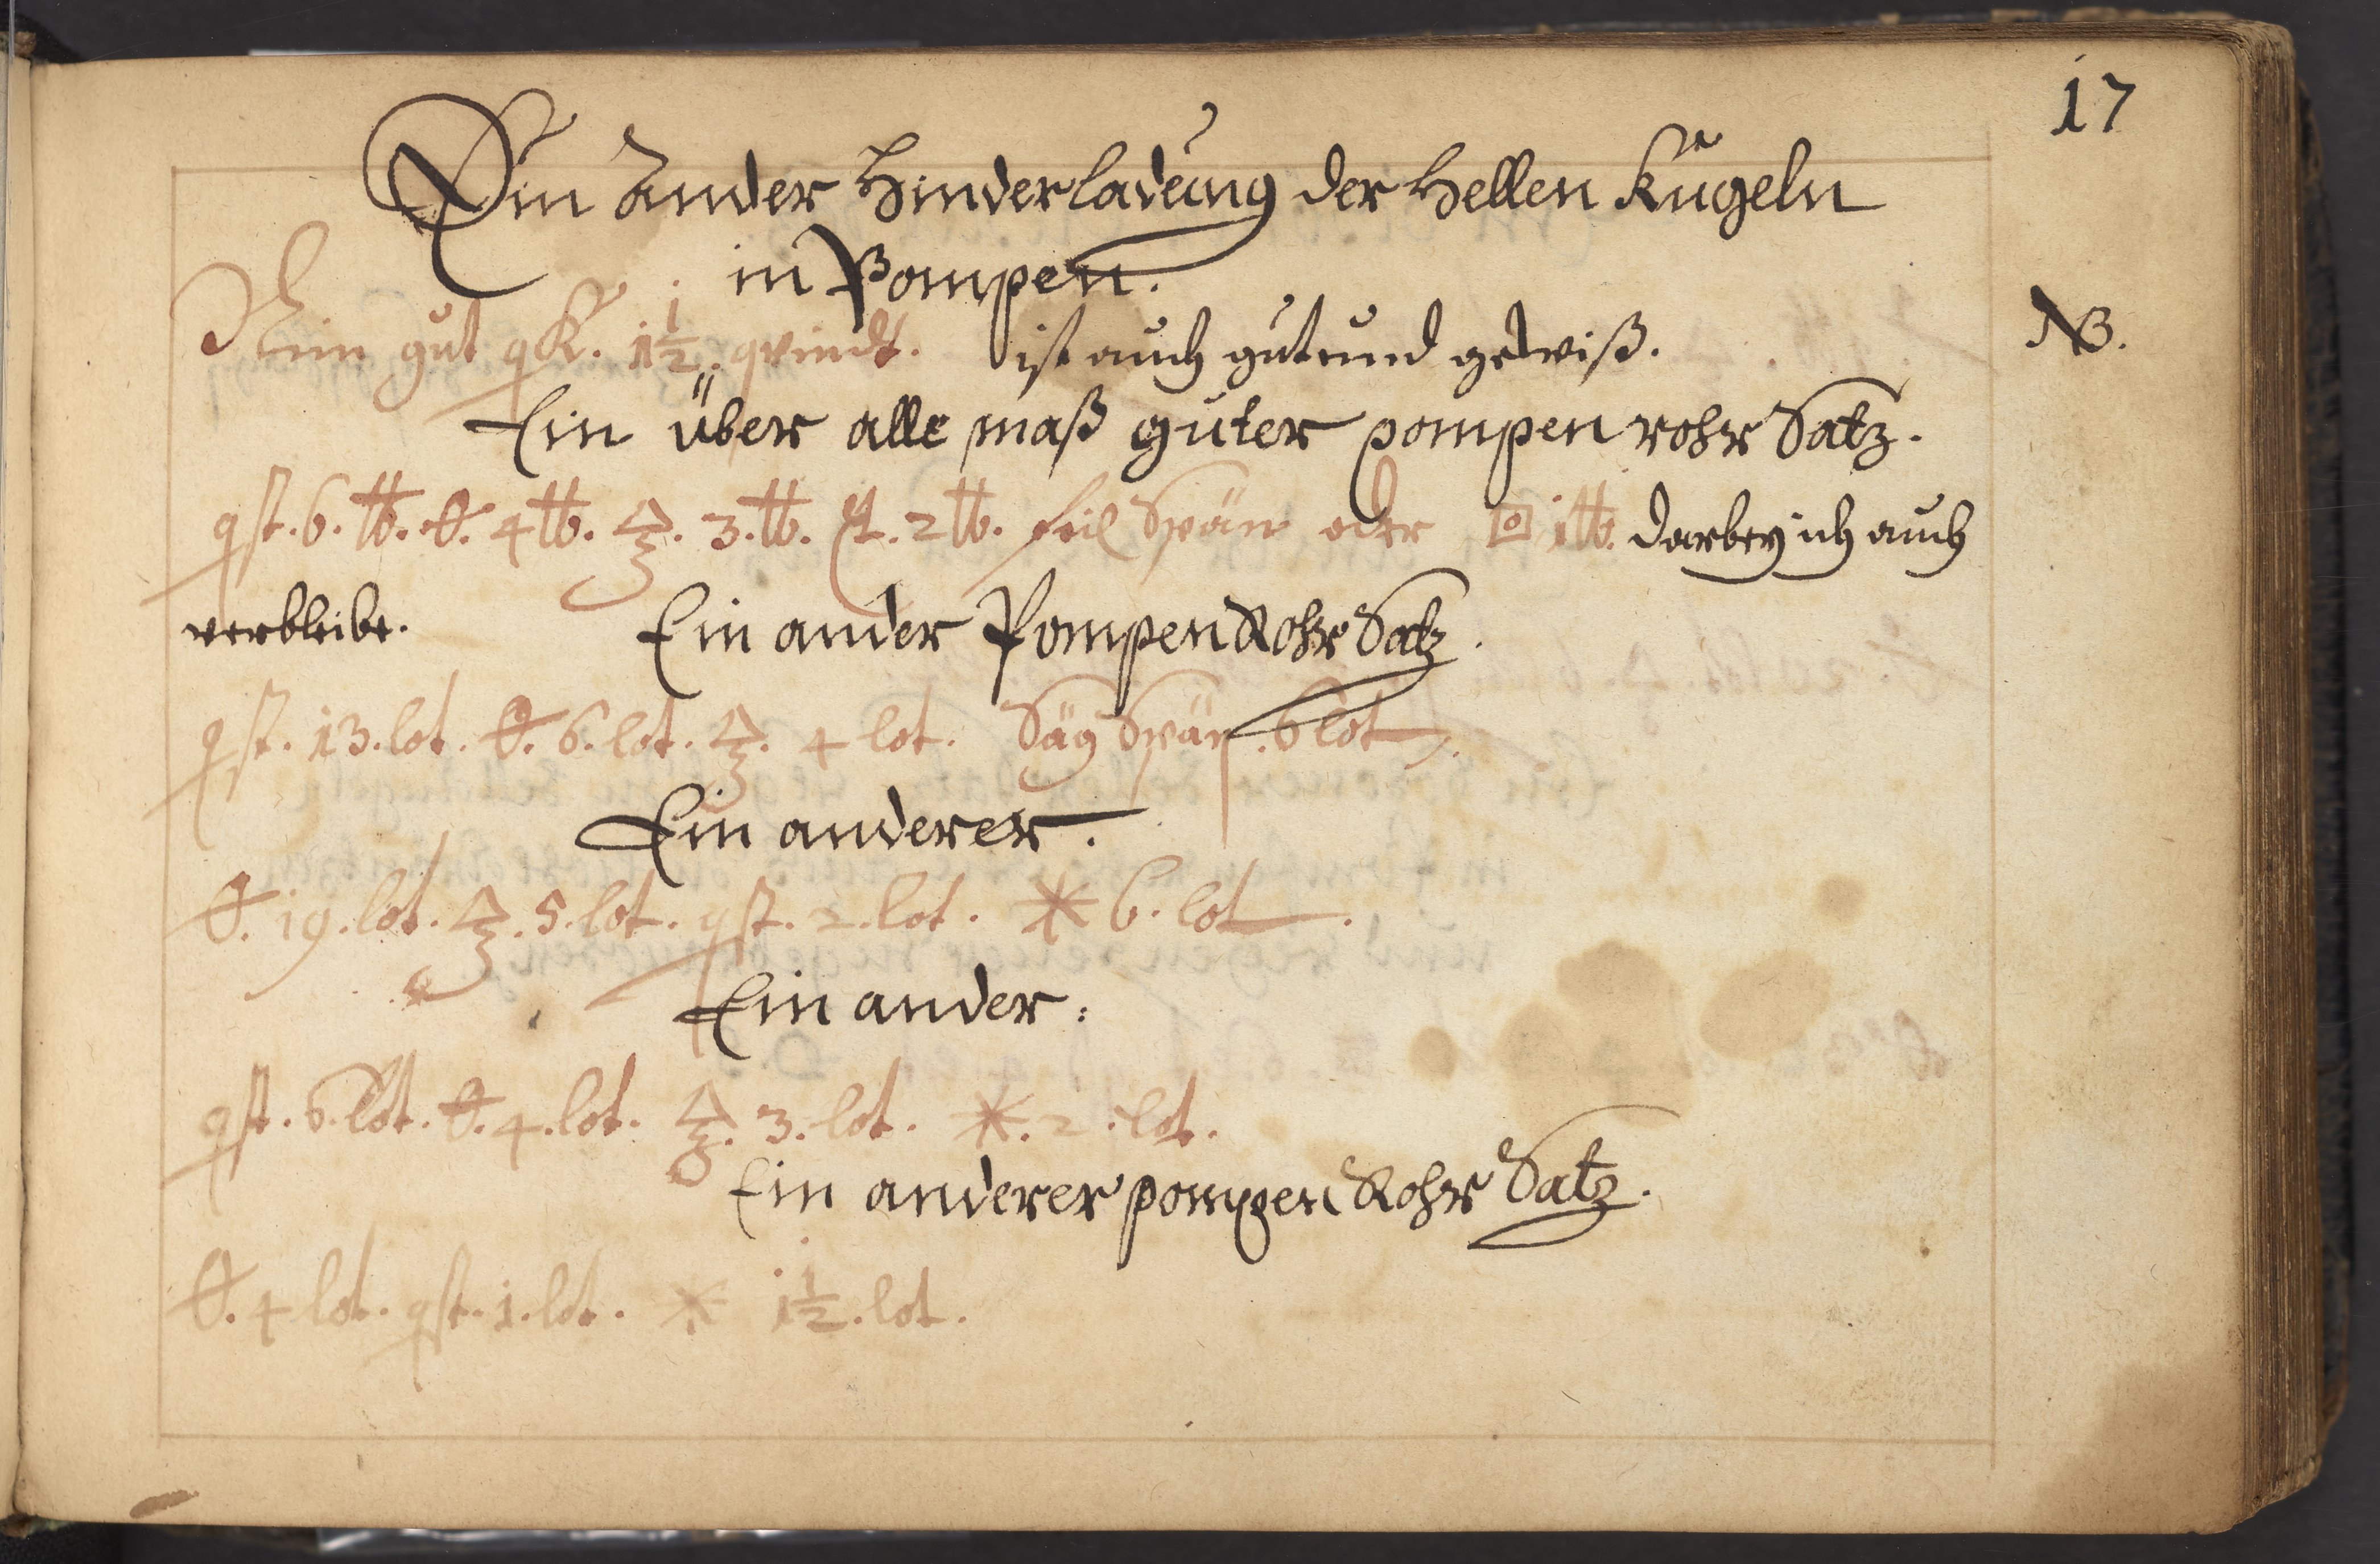 17
Ein Ander Hinderladung der Hellen Kugeln
in Pompen.
Nim gut qK. 1½. qvindt. ist auch gut und gewiß.
NB.
Ein über alle maß guter pompen rohr Satz.
qst. 6. ℔. 4 ℔. 3. ℔. 2 ℔. feil Spän oder 1 ℔. darbey ich auch
verbleibe. Ein ander Pompen Rohr Satz.
qst. 13. lot. 6. lot. 4 lot. Säg Spän. 6 lot.
Ein anderer.
19. lot. 5. lot. qst. 2. lot. * 6. lot.
Ein ander:
qst. 6. lot. 4. lot. 3. lot. *. 2. lot.
Ein anderer pompen Rohr Satz.
4 lot. qst. 1. lot. * 1½. lot.